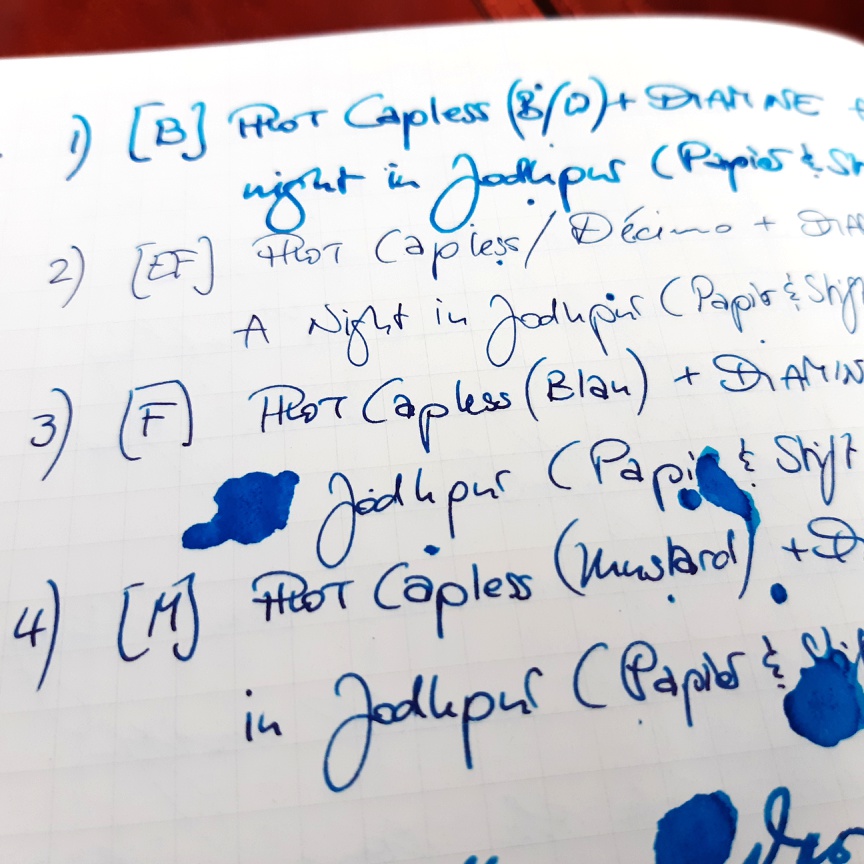 1) [B] PILOT Capless (B/O) + DIAMINE
night in Jodhpur (Papier & St
2) [EF] PILOT Capless / Décimo + DIA
A Night in Jodhpur (Papier & Stift
3) [F] PILOT Capless (Blau) + DIAMIN
Jodhpur (Papi & Stift
4) [M] PILOT Capless (Mustard) + D
in Jodhpur (Papier & Stif